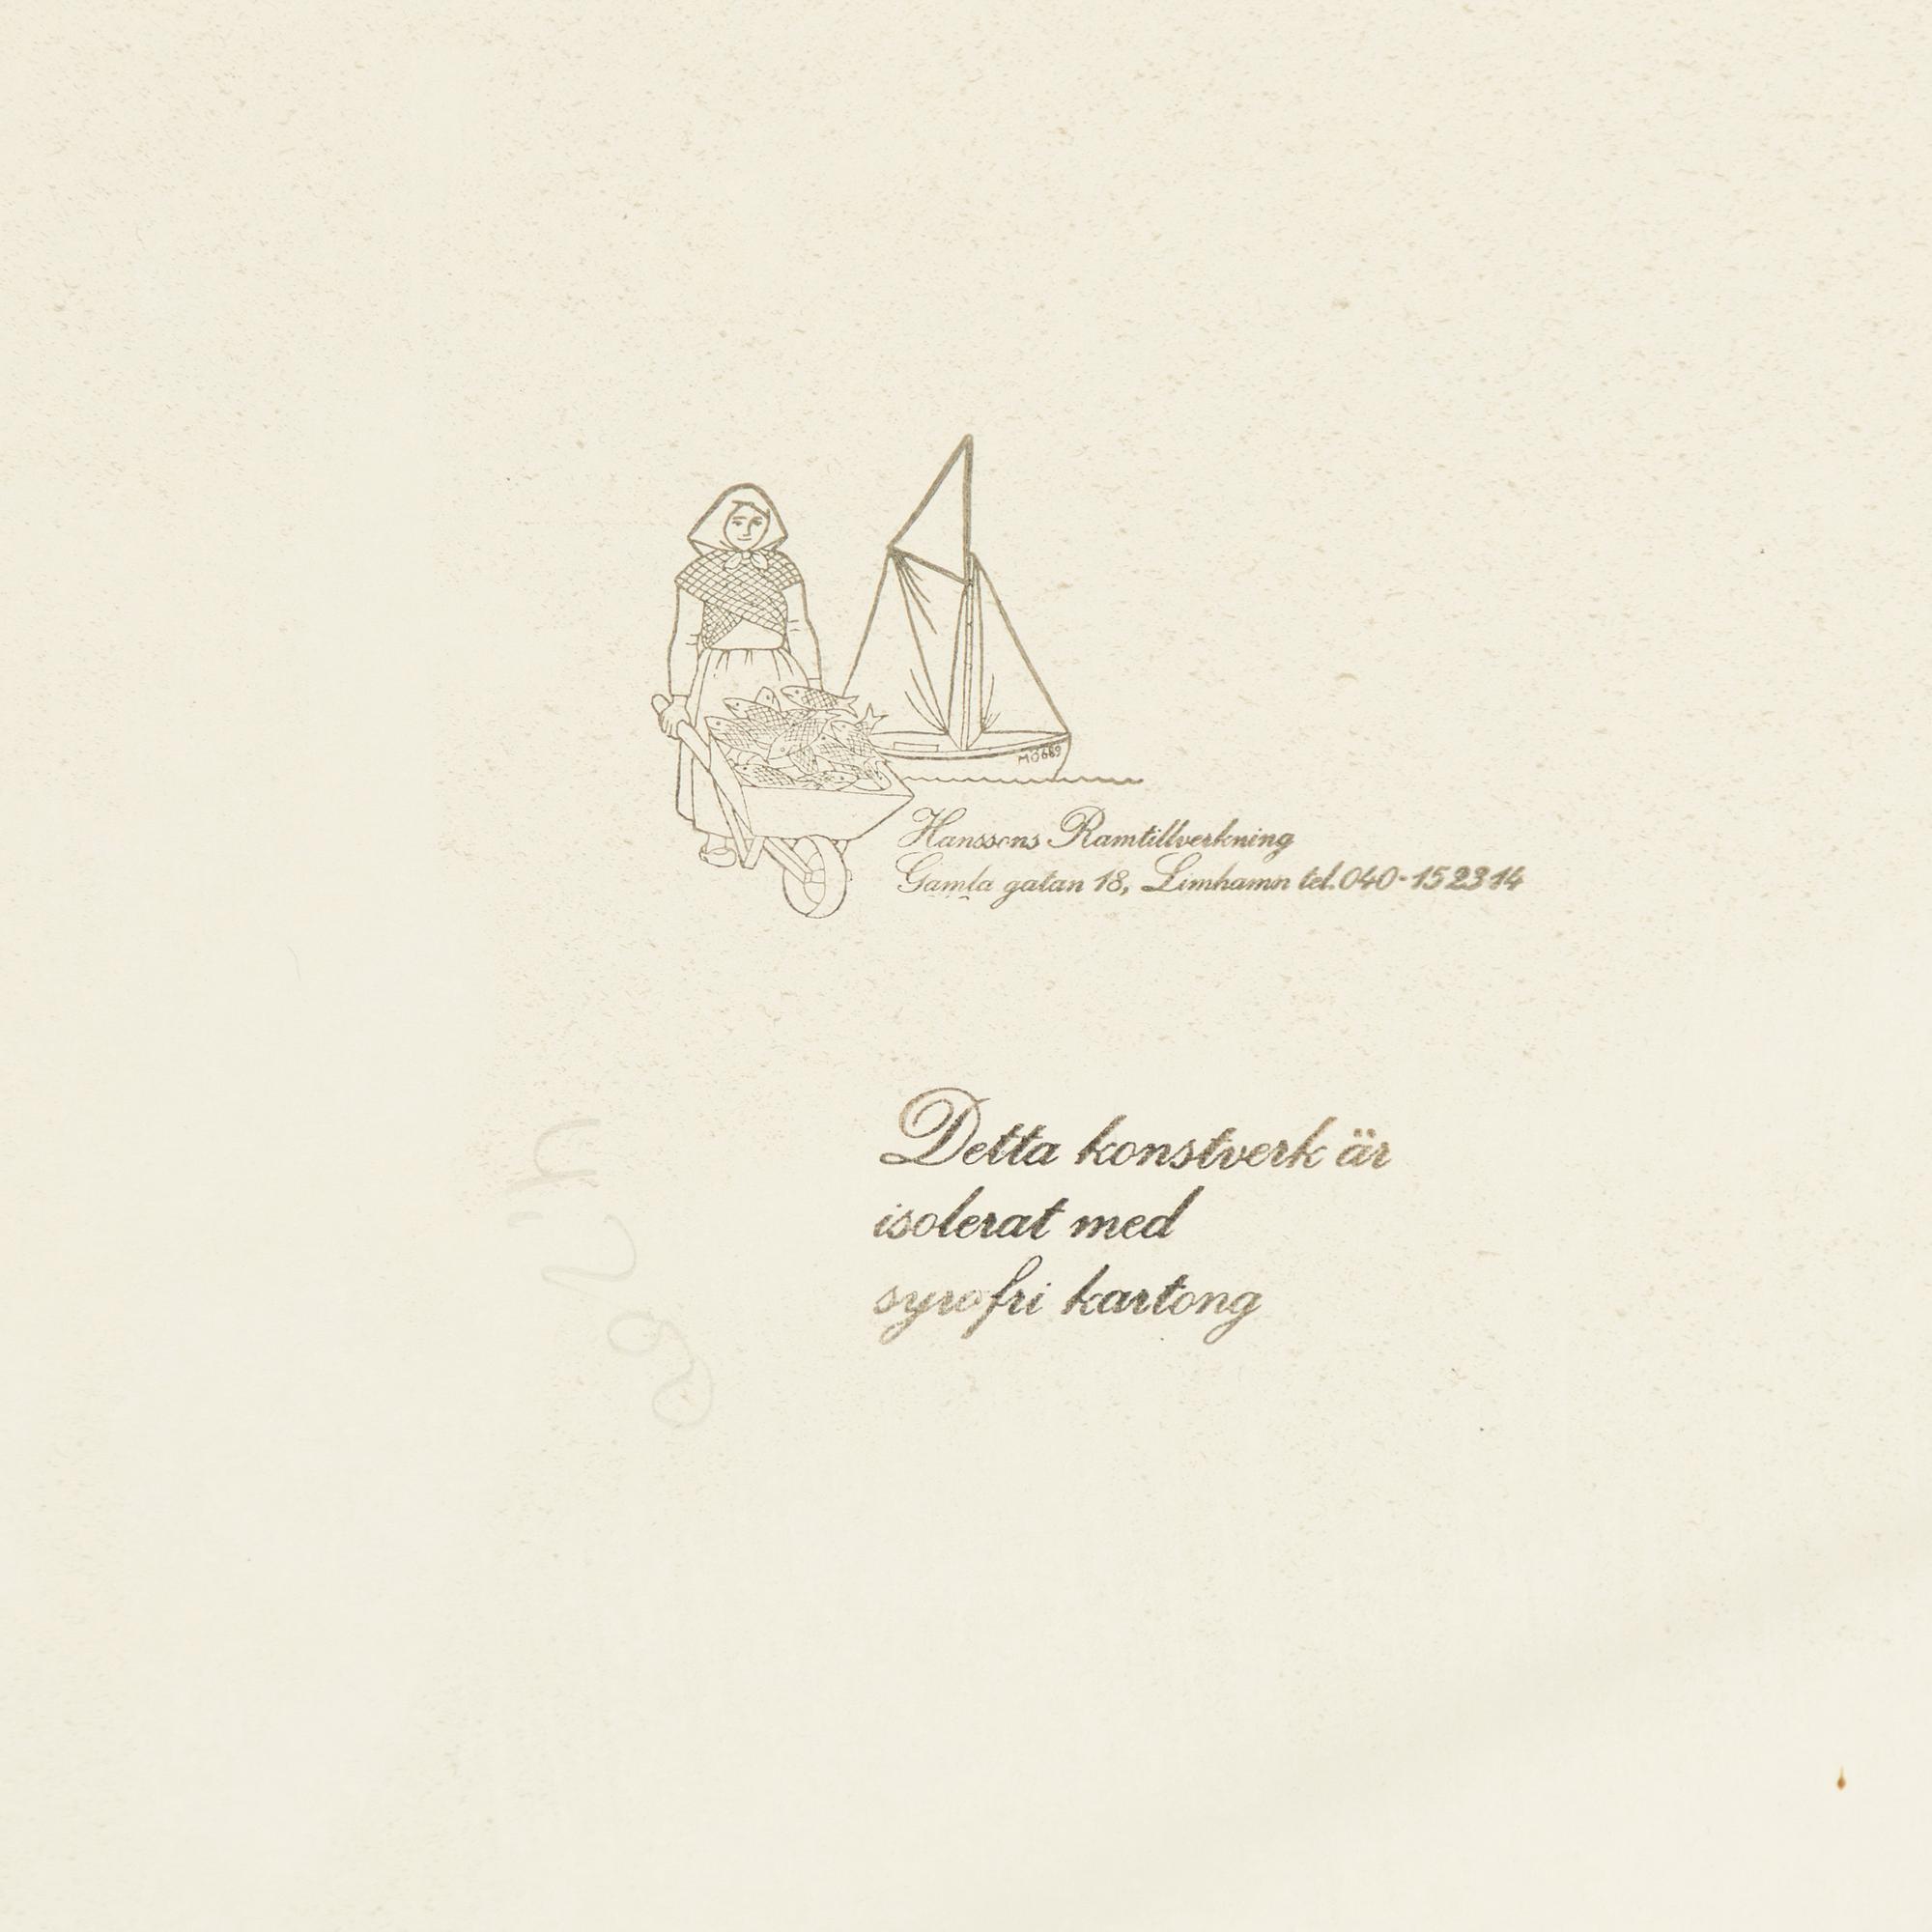 MÖ669
Hanssons Ramtillverkning
Gamla gatan 18, Limhamn tel. 040-152314
Detta konstverk är
isolerat med
syrofri kartong